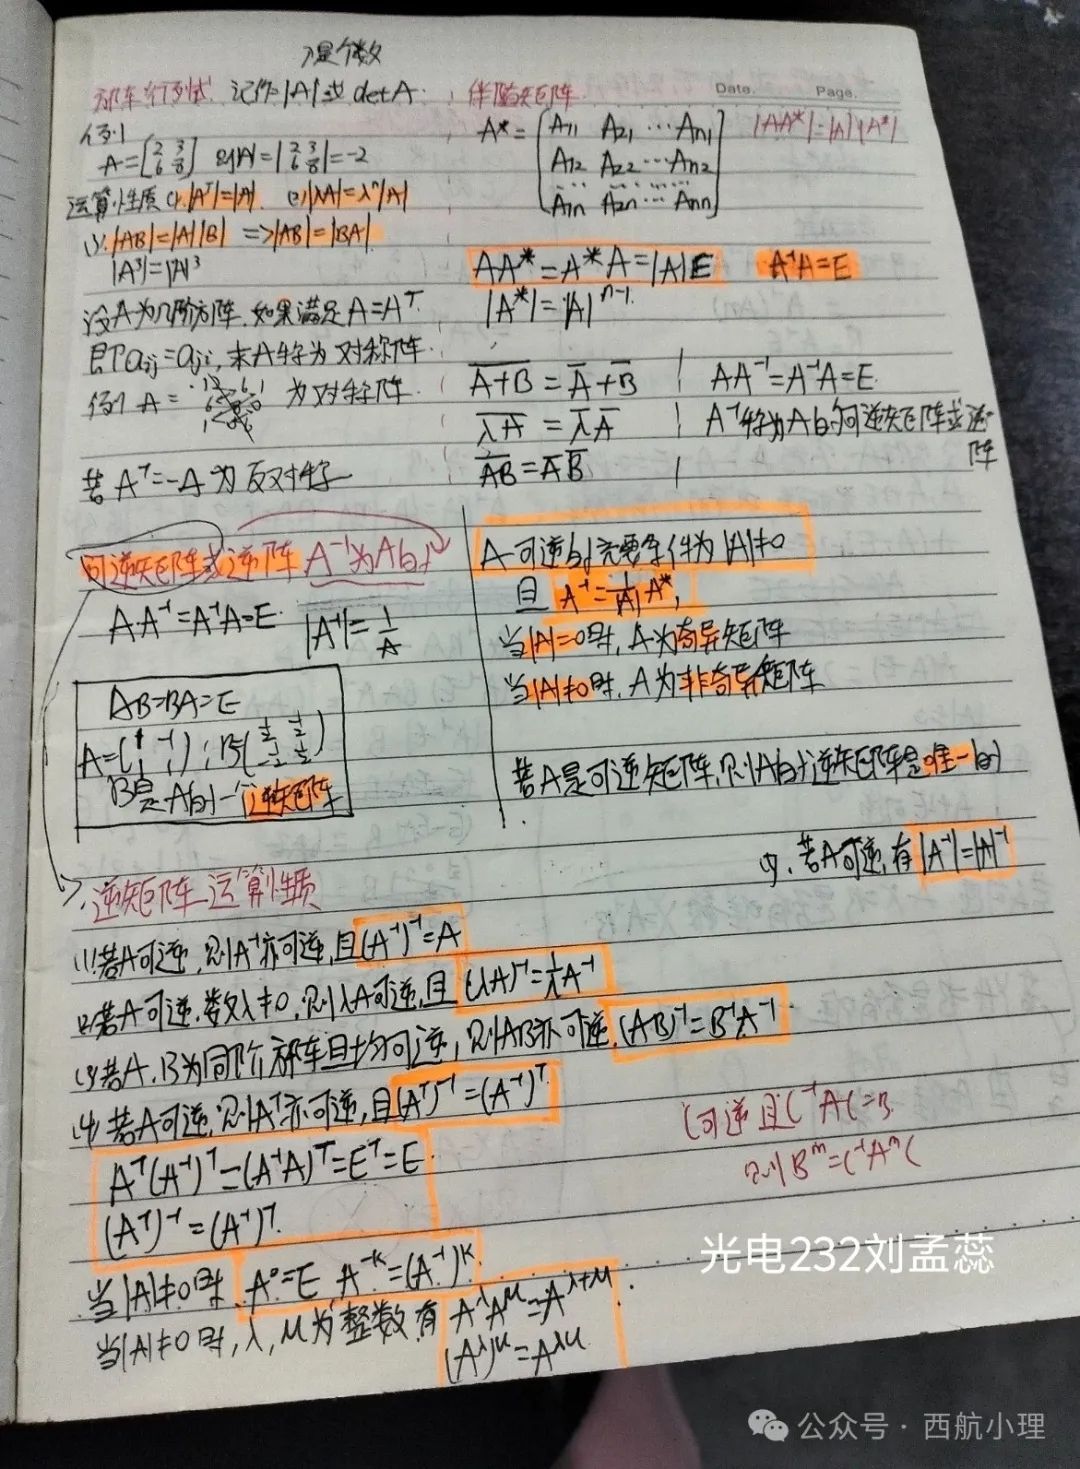 λ是个数
方阵行列式 记作|A|或 detA.
例
A=[2 3
6 8] 则|A|=|2 3
6 8|=-2
运算性质 (1).|Aᵀ|=|A|. (2)|λA|=λⁿ|A|
(3).|AB|=|A||B| =>|AB|=|BA|.
|A³|=|A|³
设A为n阶方阵.如果满足A=Aᵀ.
即aij=aji,末A称为对称阵.
例 A= 为对称阵.
若 Aᵀ=-A 为反对称
伴随矩阵.
Date. Page.
A*=[A11 A21 ⋯ An1
A12 A22 ⋯ An2
⋯ ⋯ ⋯
A1n A2n ⋯ Ann]
|AA*|=|A||A*|
AA*=A*A=|A|E A⁻¹A=E
|A*|=|A|ⁿ⁻¹.
A̅+̅B̅ = A̅+B̅
λ̅A̅ = λ̅A̅
A̅B̅=A̅ B̅
AA⁻¹=A⁻¹A=E.
A⁻¹称为A的可逆矩阵或逆
阵
可逆矩阵或逆阵 A⁻¹为A的
A·A⁻¹=A⁻¹A=E. |A⁻¹|=1/A
AB=BA=E
B是A的一个逆矩阵
A可逆的充要条件为|A|≠0
且 A⁻¹=1/|A| A*,
当|A|=0时,A为奇异矩阵
当|A|≠0时.A为非奇异矩阵
若A是可逆矩阵,则A的逆矩阵是唯一的
(5).若A可逆,有|A⁻¹|=|A|⁻¹
逆矩阵运算性质
(1)若A可逆,则A⁻¹亦可逆,且(A⁻¹)⁻¹=A
(2)若A可逆.数λ≠0,则λA可逆,且(λA)⁻¹=1/λ A⁻¹
(3)若A.B为同阶方阵且均可逆,则AB亦可逆.(AB)⁻¹=B⁻¹A⁻¹
(4)若A可逆,则Aᵀ亦可逆,且(Aᵀ)⁻¹=(A⁻¹)ᵀ.
Aᵀ(A⁻¹)ᵀ=(A⁻¹A)ᵀ=Eᵀ=E.
(Aᵀ)⁻¹=(A⁻¹)ᵀ.
C可逆且C⁻¹AC=B
则Bᵐ=C⁻¹AᵐC
当|A|≠0时. A⁰=E A⁻ᵏ=(A⁻¹)ᵏ.
当|A|≠0时,λ,μ为整数,有 A^λA^μ=A^λ+μ.
(A^λ)^μ=A^λμ
光电232刘孟蕊
公众号·西航小理